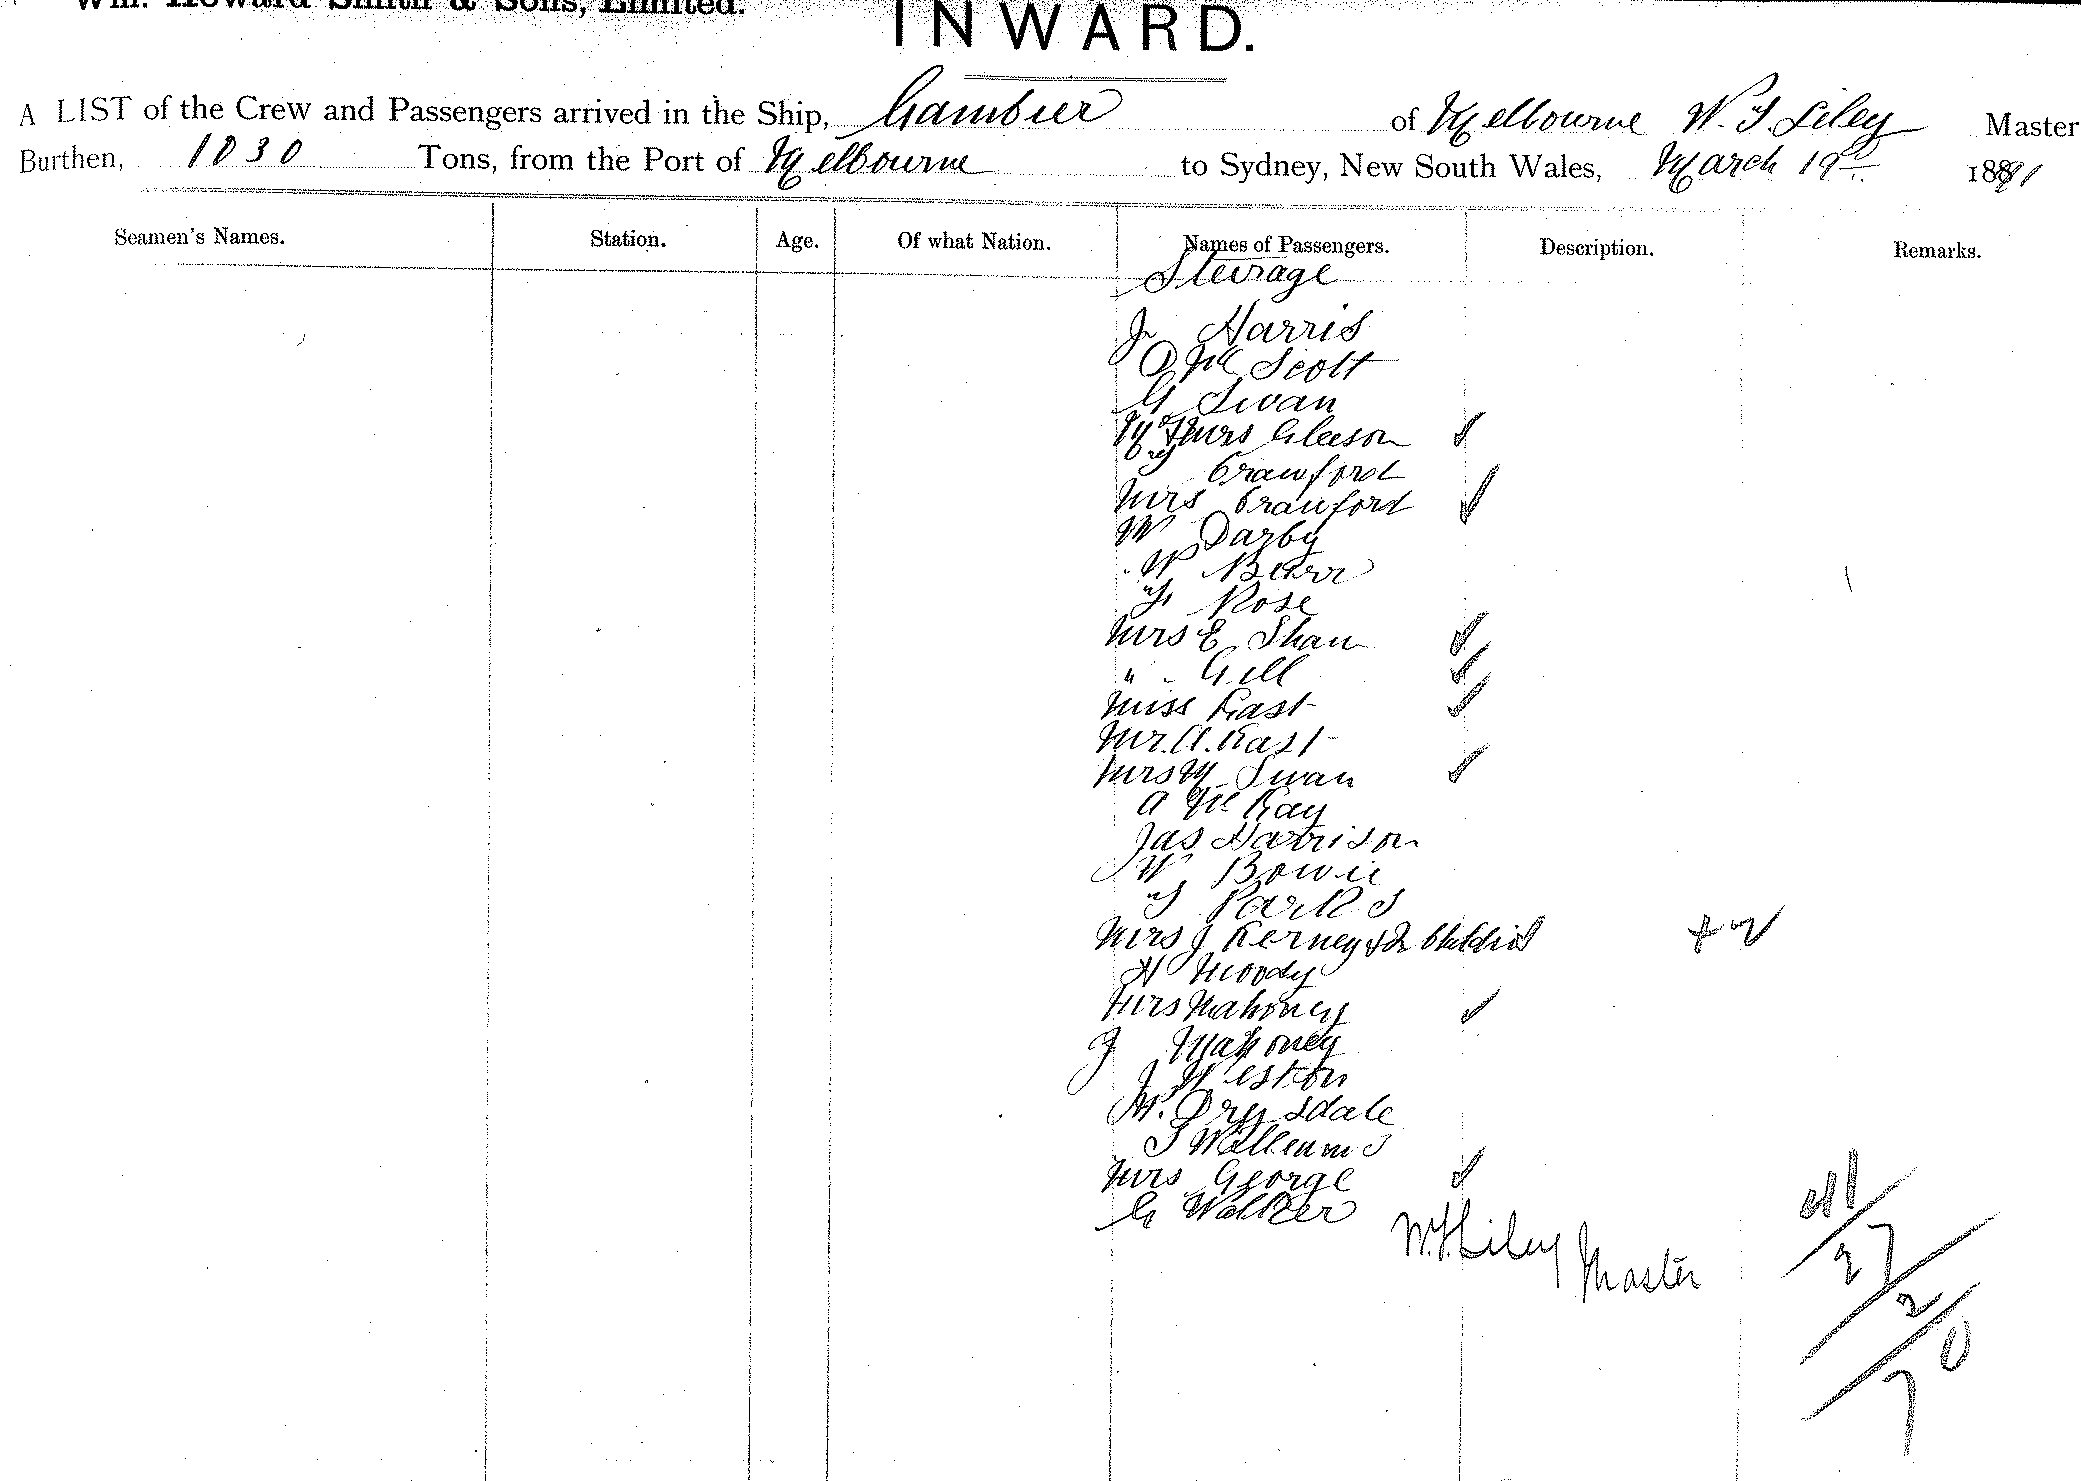 Wm. Howard Smith & Sons, Limited.
INWARD.
A LIST of the Crew and Passengers arrived in the Ship, Gambier of Melbourne W. T. Liley Master
Burthen, 1030 Tons, from the Port of Melbourne to Sydney, New South Wales, March 19th 1891
Seamen's Names. Station. Age. Of what Nation. Names of Passengers. Description. Remarks.
Steirage
J Harris
O Mc Scott
G Swan
Mrs Gleeson
Crawford
Mrs Crawford
W Darby
W Barr
F Rose
Mrs E Shaw
" Gill
Miss Kast
Mr. A. Kast
Mrs M Swan
A Mc Kay
Jas Harrison
W Bowie
T Parks
Mrs J Kerney & 2 Children + 2
H Moody
Mrs Mahoney
J Mahoney
J Weston
W. Drysdale
S Williams
Mrs George
G Walker
W. T. Liley Master
41
27
2
70